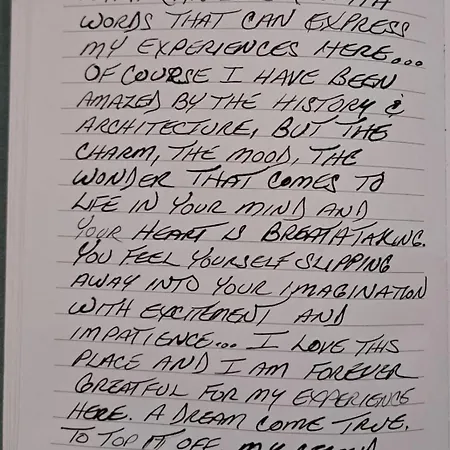 WORDS THAT CAN EXPRESS
MY EXPERIENCES HERE...
OF COURSE I HAVE BEEN
AMAZED BY THE HISTORY &
ARCHITECTURE, BUT THE
CHARM, THE MOOD, THE
WONDER THAT COMES TO
LIFE IN YOUR MIND AND
YOUR HEART IS BREATHTAKING.
YOU FEEL YOURSELF SLIPPING
AWAY INTO YOUR IMAGINATION
WITH EXCITEMENT AND
IMPATIENCE... I LOVE THIS
PLACE AND I AM FOREVER
GREATFUL FOR MY EXPERIENCE
HERE. A DREAM COME TRUE.
TO TOP IT OFF MY